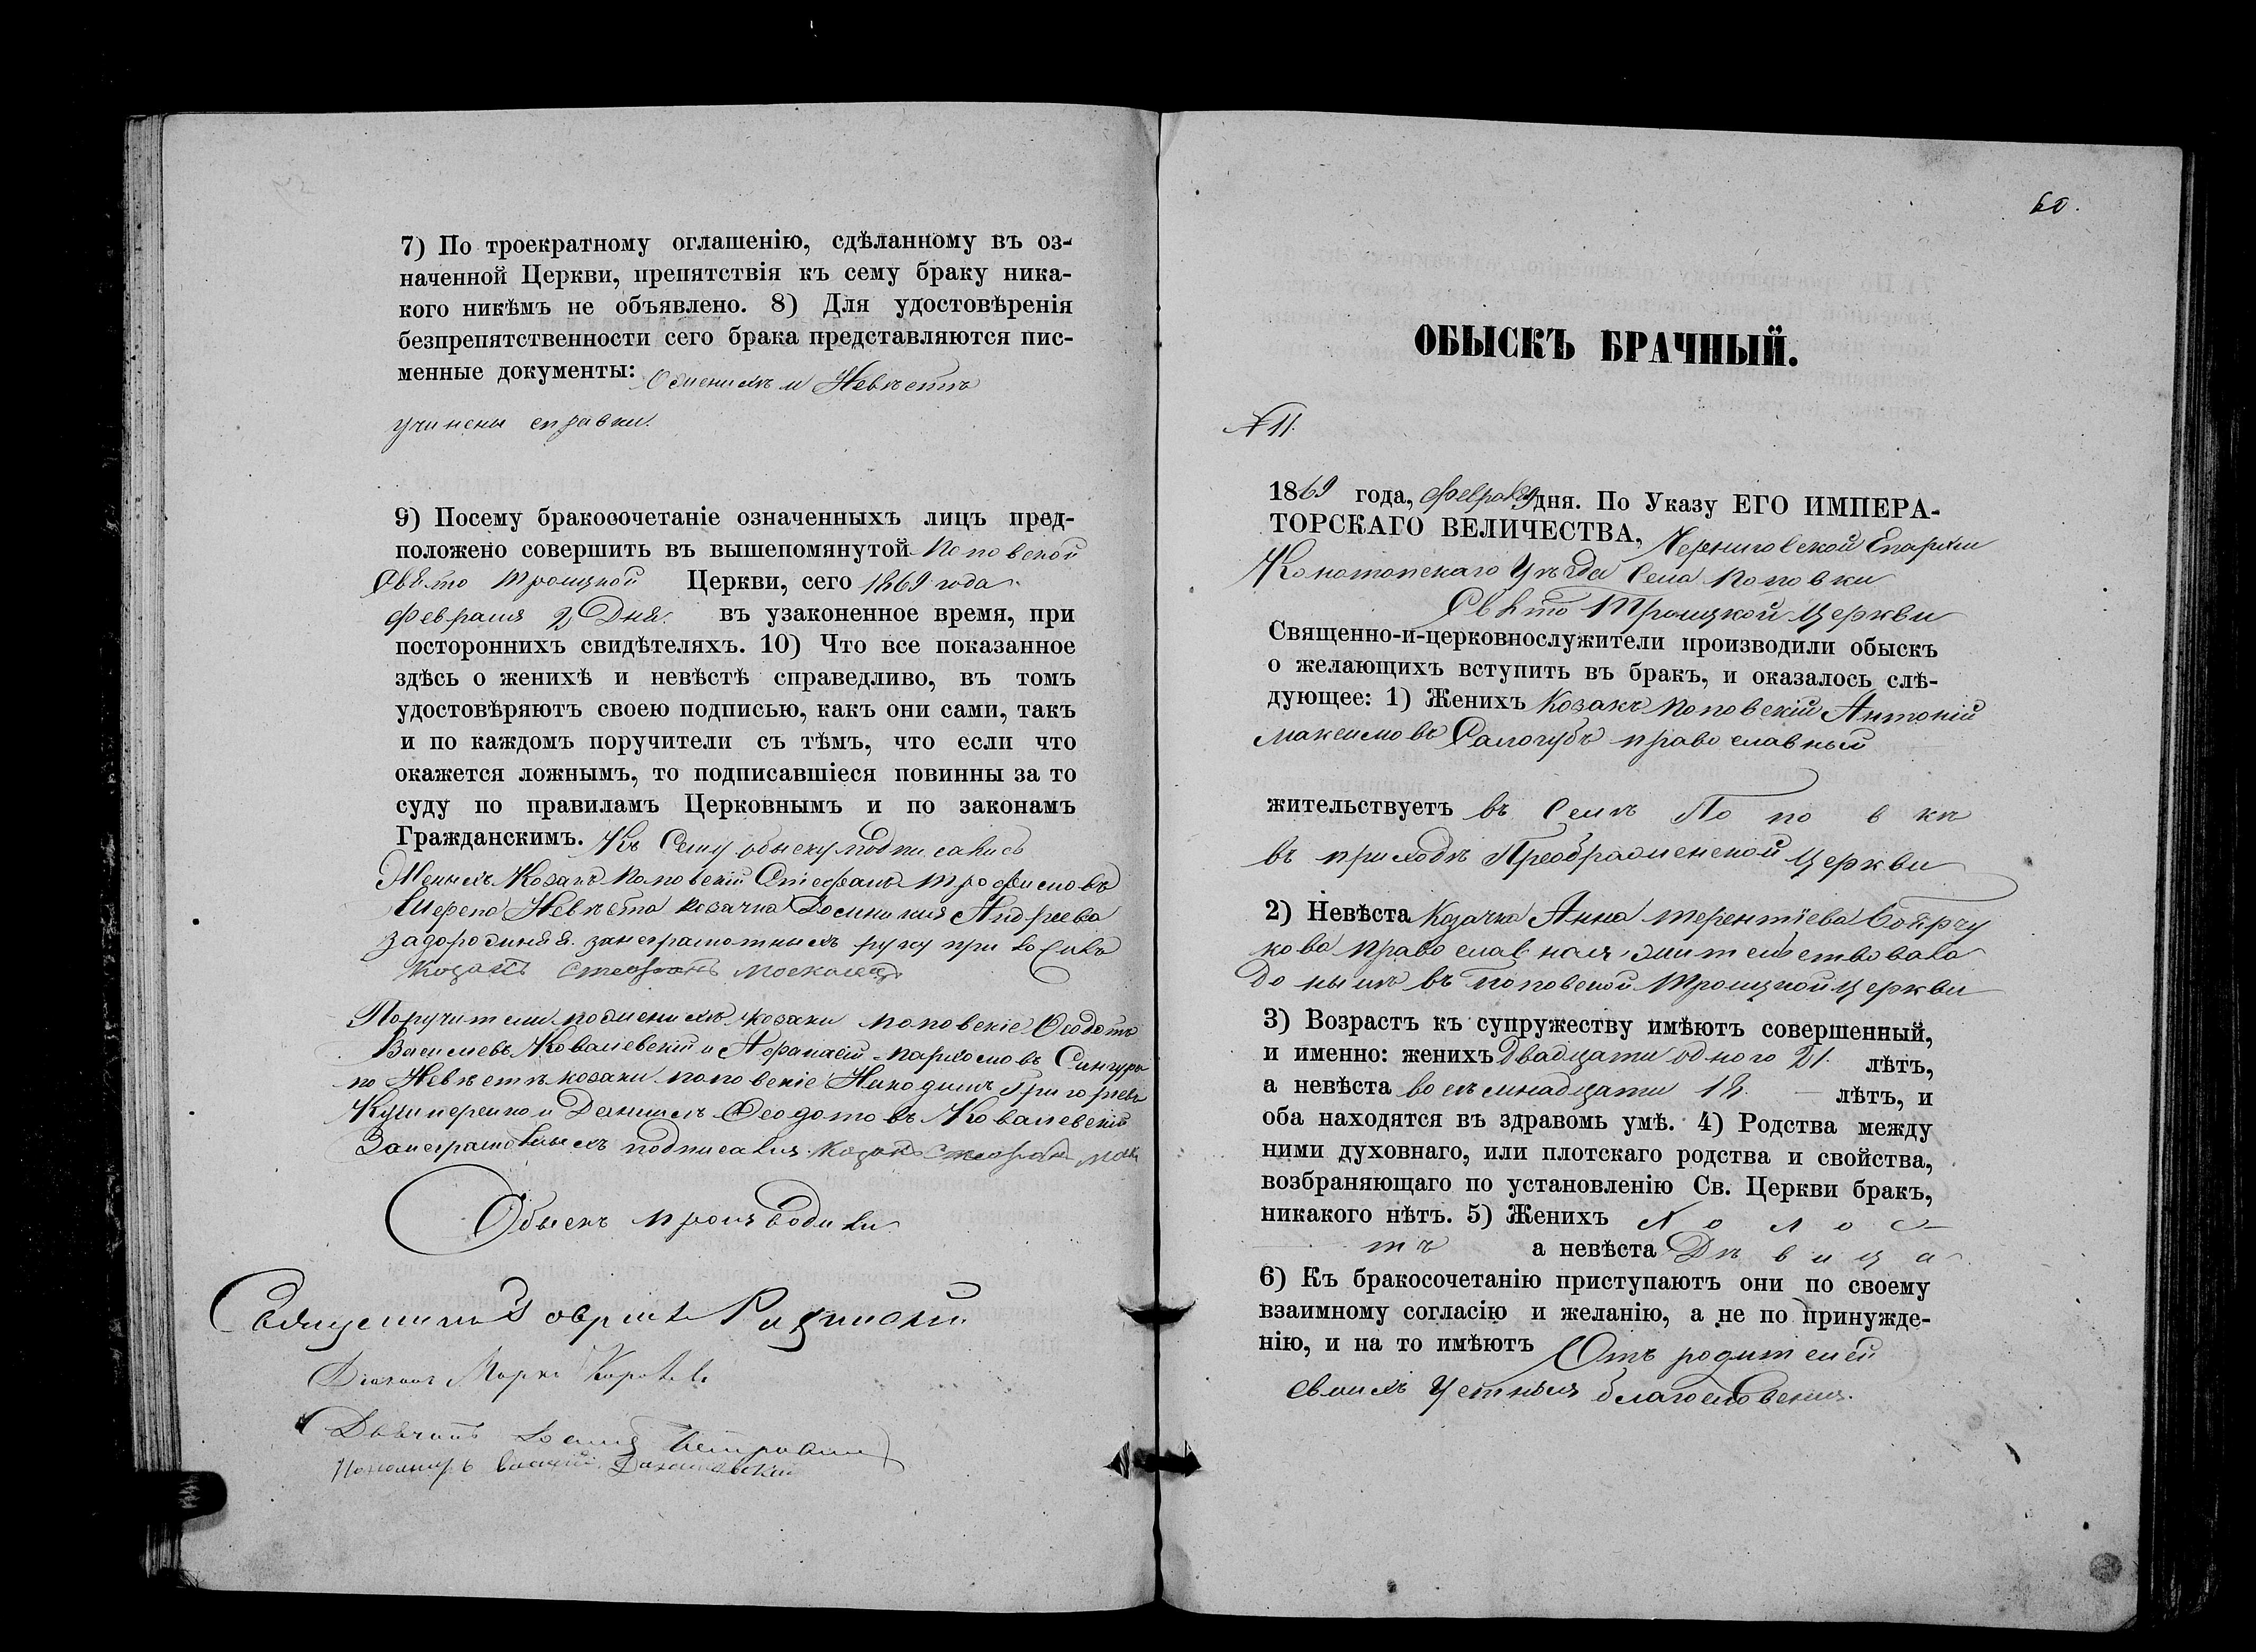 7) По троекратному оглашенію, сдѣланному въ оз-
наченной Церкви, препятствія къ сему браку ника-
кого никѣмъ не объявлено. 8) Для удостовѣренія
безпрепятственности сего брака представляются пис-
менные документы: О женихѣ и Невѣстѣ
учинены справки.
9) Посему бракосочетаніе означенныхъ лицъ пред-
положено совершить въ вышепомянутой Поповской
Свято Троицкой Церкви, сего 1869 года
февраля 2 Дня. въ узаконенное время, при
постороннихъ свидѣтеляхъ. 10) Что все показанное
здѣсь о женихѣ и невѣстѣ справедливо, въ томъ
удостовѣряютъ своею подписью, какъ они сами, такъ
и по каждомъ поручители съ тѣмъ, что если что
окажется ложнымъ, то подписавшіеся повинны за то
суду по правиламъ Церковнымъ и по законамъ
Гражданскимъ. Къ Сему обыску подписались
Женихъ Козакъ Поповскій Стефанъ Трофимовъ
Шерепа Невѣста козачка Домникия Андреева
Задорожняя. за неграмотныхъ руку приложилъ
Козакъ Стефанъ Москалец
Поручители по женихѣ козаки Поповскіе Феодотъ
Василіевъ Ковалевскій и Афанасій Пархомовъ Сингуръ
по Невѣстѣ козаки поповскіе Никодимъ Григорьевъ
Кушнеренко и Даниилъ Феодотовъ Ковалевскій
За неграмотныхъ подписался Козакъ Стефанъ Моск
Обыскъ производили
Священникъ
Діаконъ Марко
Дьячокъ
Пономарь Василій
60.
ОБЫСКЪ БРАЧНЫЙ.
№ 11.
1869 года, февра дня. По Указу ЕГО ИМПЕРА-
ТОРСКАГО ВЕЛИЧЕСТВА, Черниговской Епархіи
Конотопскаго Уѣзда Села Поповки
Свято Троицкой Церкви
Священно-и-церковнослужители производили обыскъ
о желающихъ вступить въ бракъ, и оказалось слѣ-
дующее: 1) Женихъ Козакъ Поповскій Антоній
Максимовъ Салогубъ православный
жительствуетъ въ Селѣ Поповкѣ
въ приходѣ Преображенской Церкви
2) Невѣста Козачка Анна Терентіева
православная, жительствовала
до нынѣ въ Поповской Троицкой Церкви
3) Возрастъ къ супружеству имѣютъ совершенный,
и именно: женихъ Двадцати одного 21. лѣтъ,
а невѣста восемнадцати 18. лѣтъ, и
оба находятся въ здравомъ умѣ. 4) Родства между
ними духовнаго, или плотскаго родства и свойства,
возбраняющаго по установленію Св. Церкви бракъ,
никакого нѣтъ. 5) Женихъ Холос-
тъ а невѣста Дѣвица
6) Къ бракосочетанію приступаютъ они по своему
взаимному согласію и желанію, а не по принужде-
нію, и на то имѣютъ Отъ родителей
своихъ Устныя благословенія.